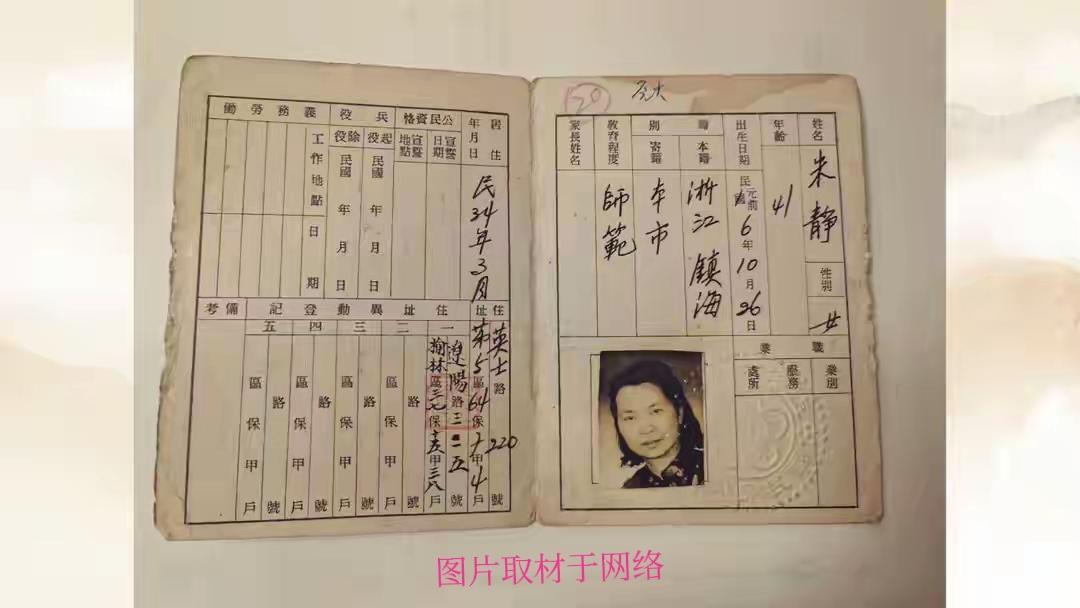 姓名 朱静
性别 女
年齡 41
出生日期 民元前6年10月26日
籍別 本籍 浙江鎮海
寄籍 本市
教育程度 師範
家長姓名
職業 業別
服務處所
20
居住年月日 民34年3月
公民資格 宣誓日期
宣誓地點
兵役 起役 民國 年 月 日
除役 民國 年 月 日
義務勞働 工作地點
日期
住址 英士路220號
第5區64保十甲4戶
住址異動登記
一 遼陽路三一五號
榆林區三七保十五甲三八戶
二 路 號
區保甲戶
三 路 號
區保甲戶
四 路 號
區保甲戶
五 路 號
區保甲戶
備考
图片取材于网络